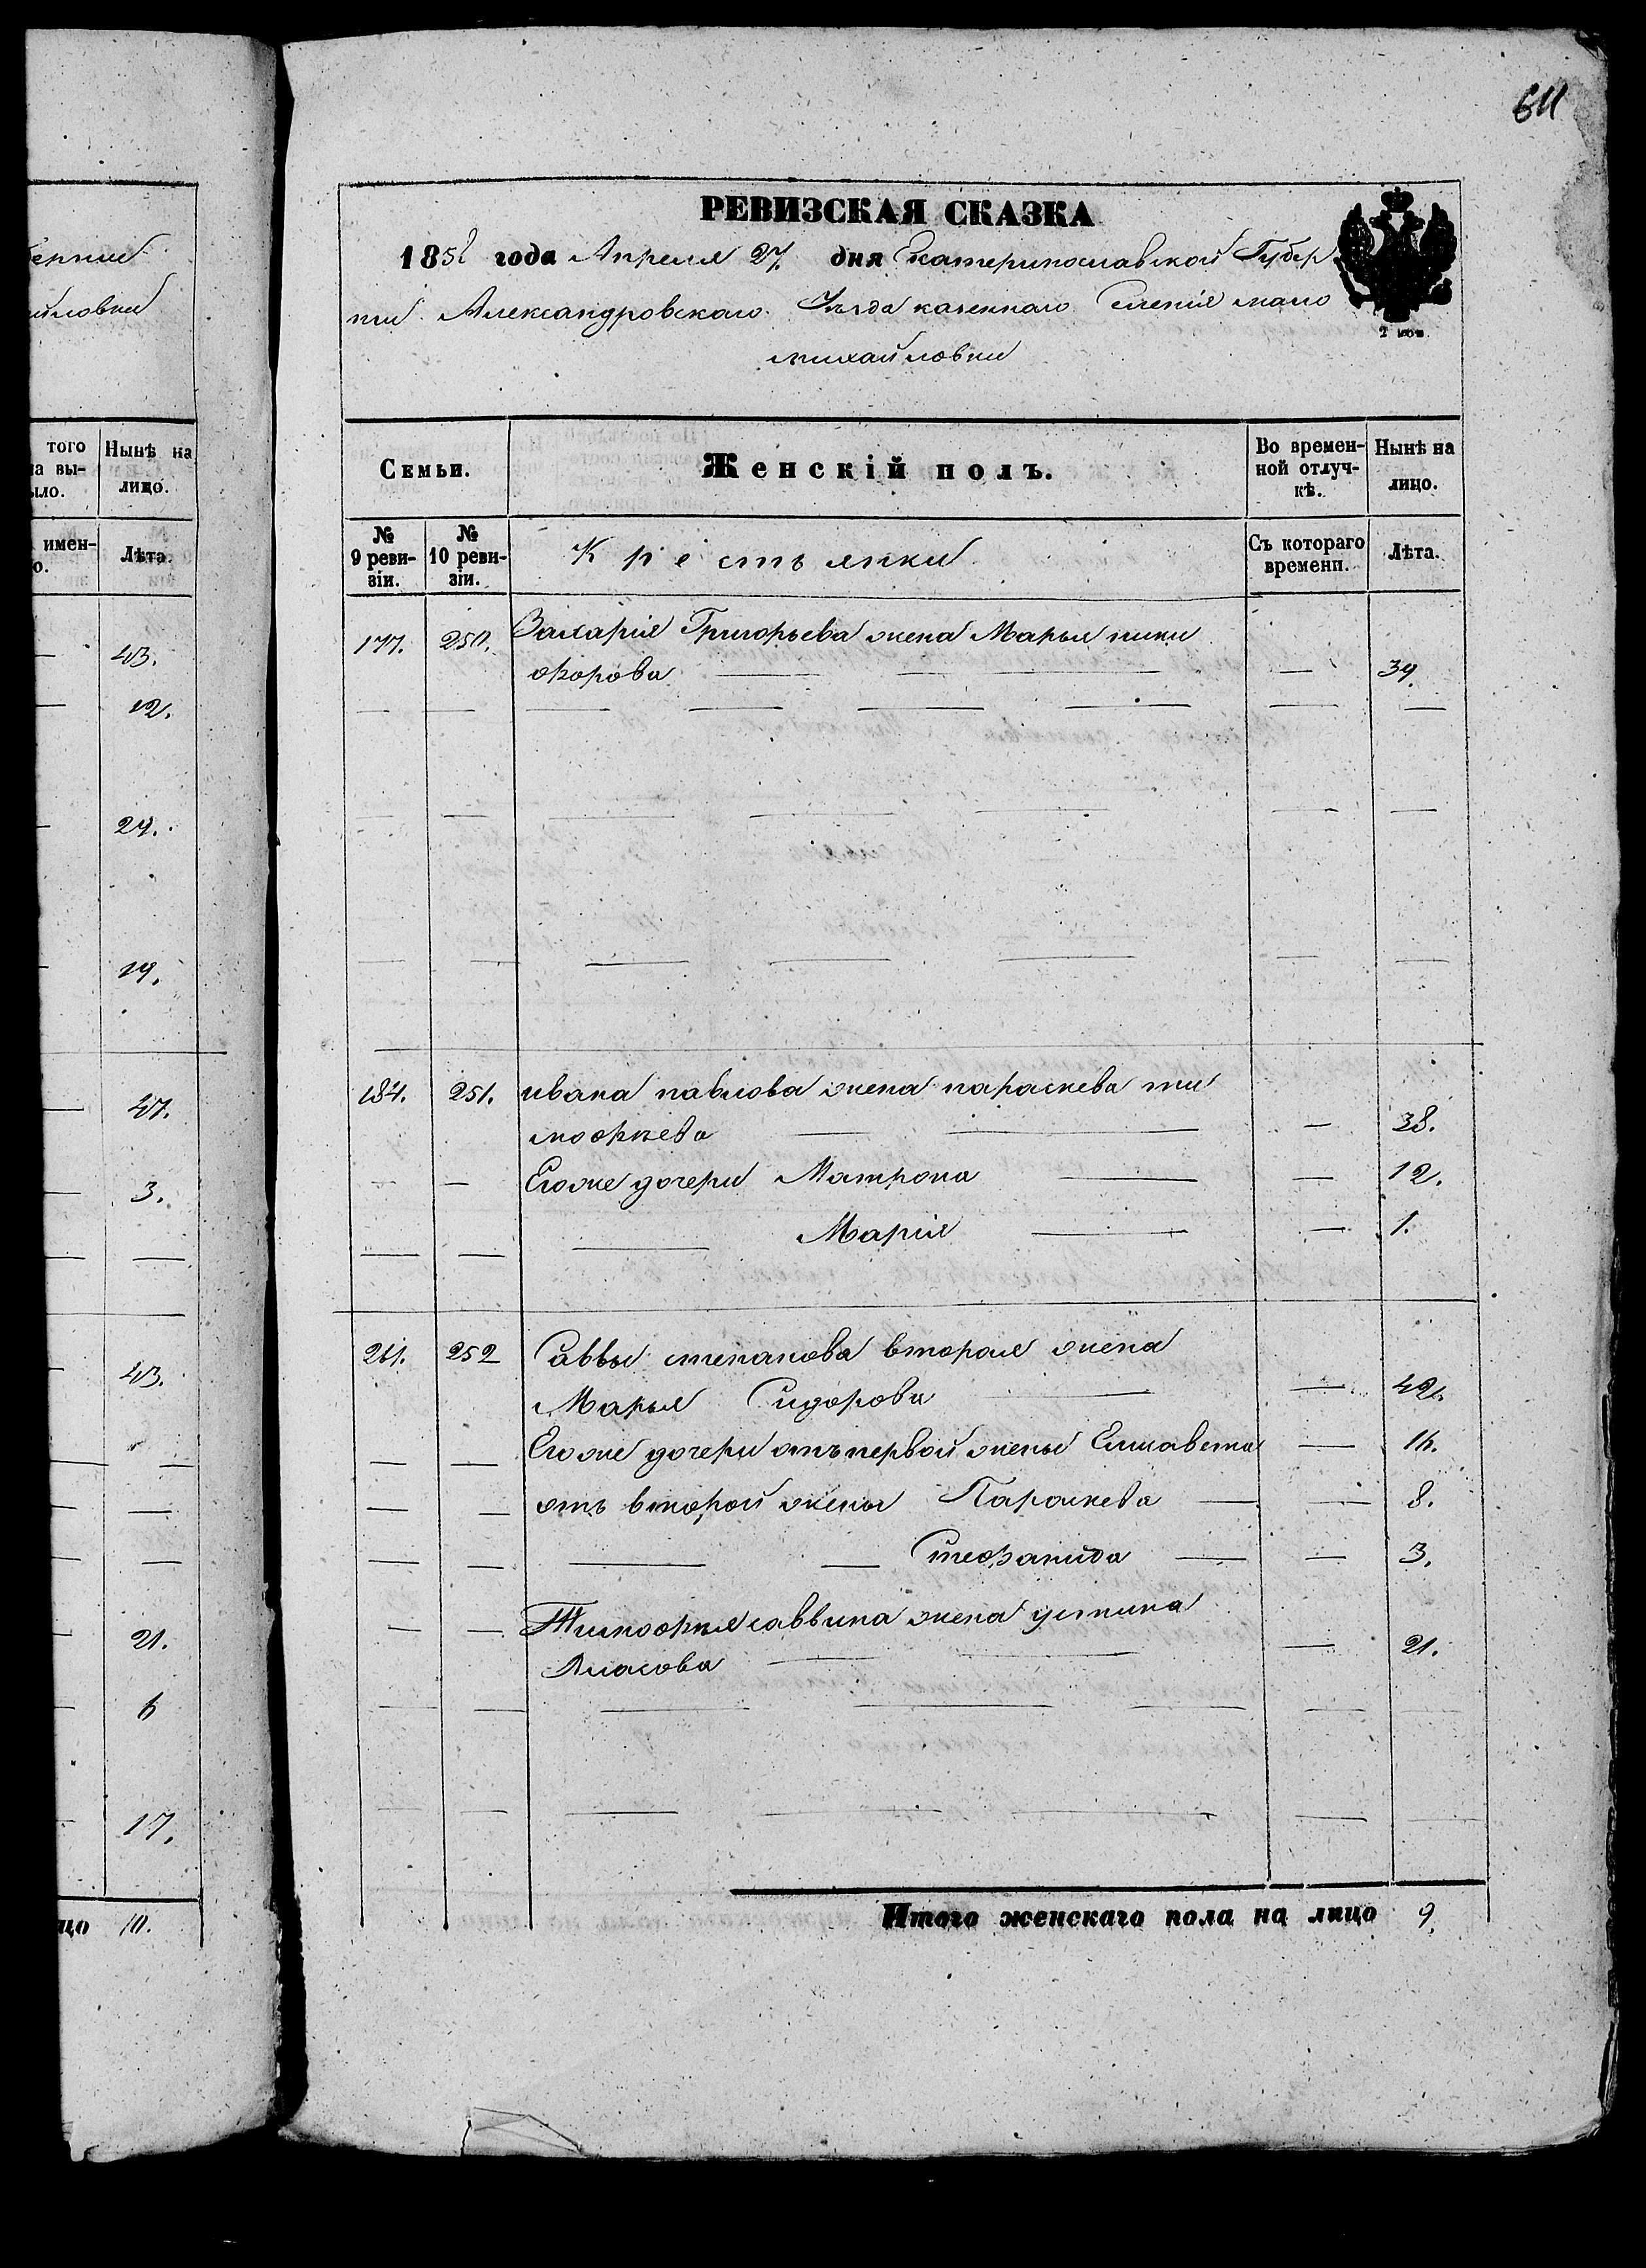 611
РЕВИЗСКАЯ СКАЗКА
1858 года Апреля 27. дня Екатеринославской Губер
нии Александровскаго Уезда казеннаго Селенія мало
михайловки
2 коп.
Семьи. Женскій полъ. Во временной отлучкѣ. Нынѣ на лицо.
№ 9 ревизіи. № 10 ревизіи. Крестьянки Съ котораго времени. Лѣта.
177. 250. Захарія Григорьева жена Марья ники
форова — — — 39.
184. 251. ивана павлова жена параскева ти
мофѣева — — — 38.
Егоже дочери Матрона — — 12.
Марія — — 1.
211. 252 Саввы степанова вторая жена
Марья Сидорова — — 42.
Егоже дочери отъ первой жены Елисавета — 16.
отъ второй жены Параскева — — 8.
Стефанида — — 3.
Тимофея саввина жена устина
Власова — — — 21.
Итого женскаго пола на лицо 9.
того Нынѣ на
на вы-
ыло. лицо.
имен-
о. Лѣта.
йловки
43.
12.
29.
19.
47.
3.
43.
21.
6
17.
цо 10.